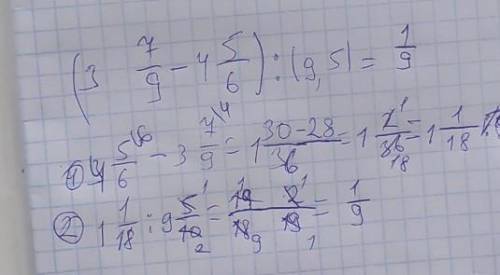 (3 7/9 - 4 5/6) : (9,5) = 1/9
① 4 5/6 ⁶ - 3 7/9 ⁴ = 1 30-28/36 = 1 2/36 ¹/₁₈ = 1 1/18
② 1 1/18 : 9 5/10 ¹/₂ = 19/18 ¹/₉ 2/19 ¹/₁ = 1/9